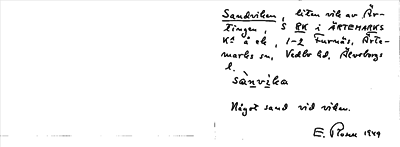 Sandviken, liten vik av Är-
tingen, S RK i ÄRTEMARKS
Ka å ek, 1-2 Furnäs, Ärte-
marks sn, Vedbo hd, Älvsborgs
l.
sànvika
Något sand vid viken.
E. Rosell 1949